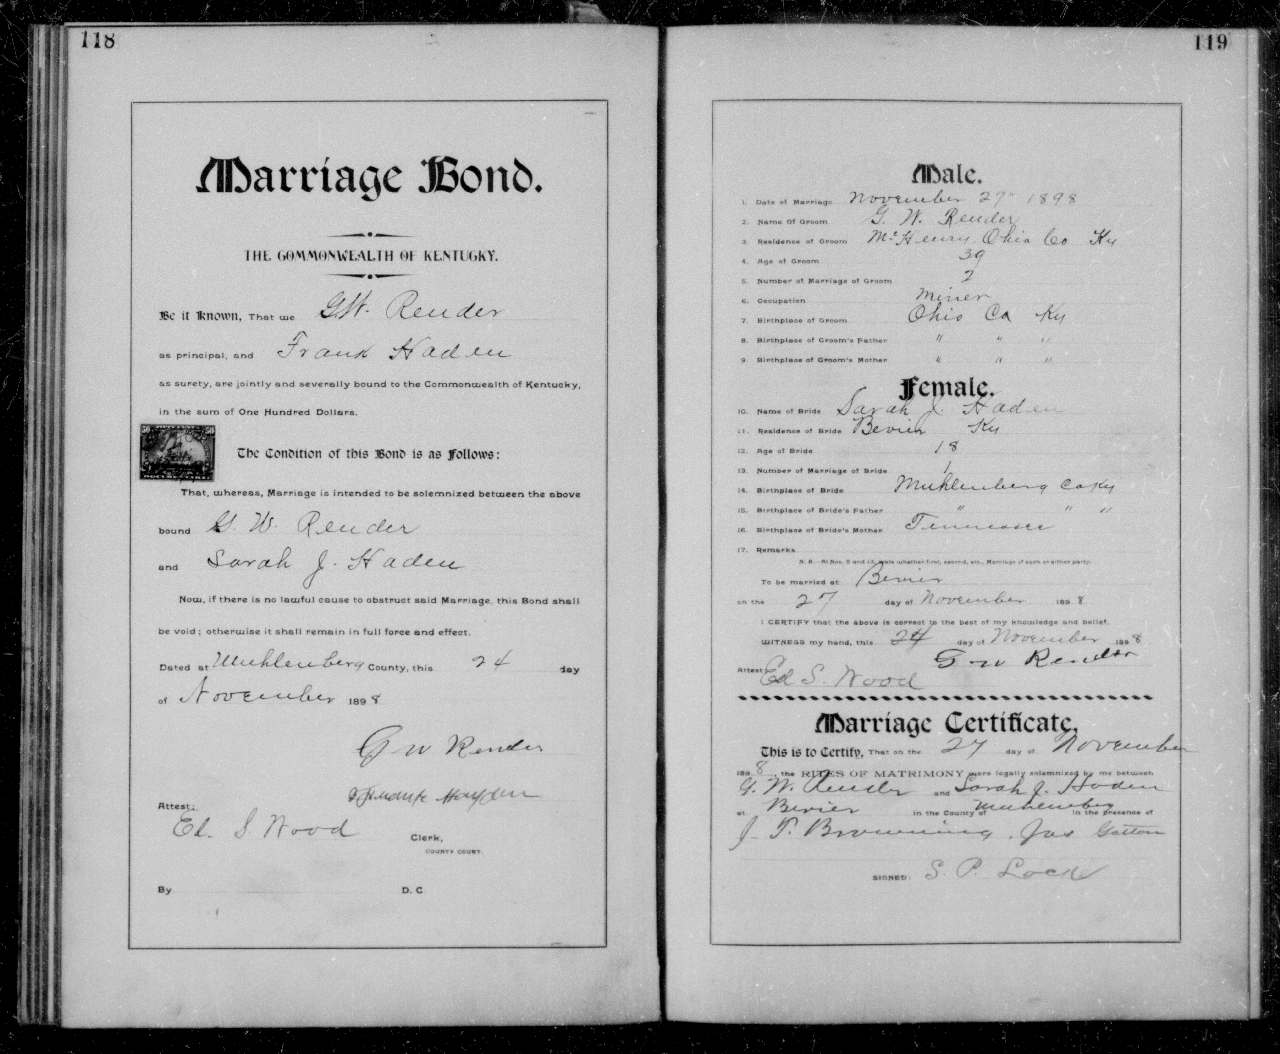 118
Marriage Bond.
THE COMMONWEALTH OF KENTUCKY.
Be it Known, That we G W. Render
as principal, and Frank Haden
as surety, are jointly and severally bound to the Commonwealth of Kentucky,
in the sum of One Hundred Dollars.
50 50
The Condition of this Bond is as Follows:
That, whereas, Marriage is intended to be solemnized between the above
bound G. W. Render
and Sarah J. Haden
Now, if there is no lawful cause to obstruct said Marriage, this Bond shall
be void; otherwise it shall remain in full force and effect.
Dated at Muhlenberg County, this 24 day
of November 1898
G W Render
Hayden
Attest:
Ed. S Wood Clerk,
COUNTY COURT.
By D. C.
119
Male.
1. Date of Marriage November 27" 1898
2. Name Of Groom G. W. Render
3. Residence of Groom McHenry Ohio Co Ky
4. Age of Groom 39
5. Number of Marriage of Groom 2
6. Occupation Miner
7. Birthplace of Groom Ohio Co Ky
8. Birthplace of Groom's Father " " "
9. Birthplace of Groom's Mother " " "
Female.
10. Name of Bride Sarah J. Haden
11. Residence of Bride Bevier Ky
12. Age of Bride 18
13. Number of Marriage of Bride 1
14. Birthplace of Bride Muhlenberg Co Ky
15. Birthplace of Bride's Father " " "
16. Birthplace of Bride's Mother Tennessee
17. Remarks
N. B.—At Nos. 5 and 13, state whether first, second, etc., Marriage of each or either party.
To be married at Bevier
on the 27 day of November 1898
I CERTIFY that the above is correct to the best of my knowledge and belief.
WITNESS my hand, this 24 day of November 1898
G W Render
Attest: Ed S. Wood
Marriage Certificate.
This is to Certify, That on the 27 day of November
1898, the RITES OF MATRIMONY were legally solemnized by me between
G. W. Render and Sarah J. Haden
at Bevier in the County of Muhlenberg in the presence of
J. T. Browning. Jas Gatton
SIGNED: S. P. Lock